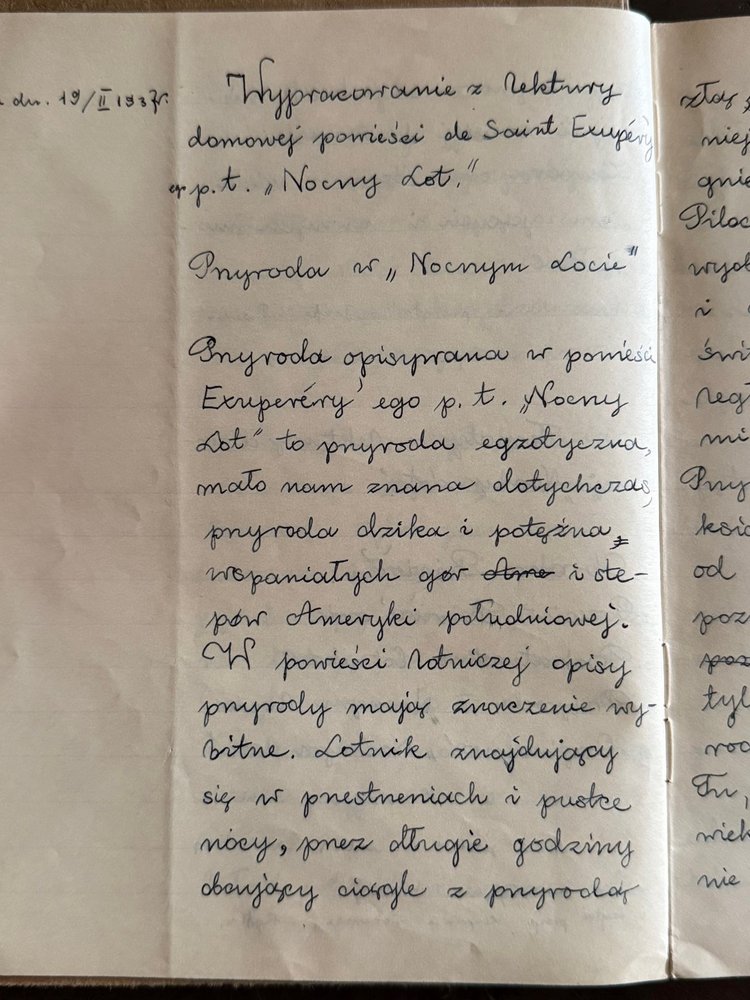 dn. 19/II 1937r.
Wypracowanie z lektury
domowej powieści de Saint Exupéry
p.t. „Nocny Lot."
Przyroda w „Nocnym Locie"
Przyroda opisywana w powieści
Exuperéry'ego p.t. „Nocny
Lot" to przyroda egzotyczna,
mało nam znana dotychczas,
przyroda dzika i potężna,
wspaniałych gór Ame i ste-
pów Ameryki południowej.
W powieści lotniczej opisy
przyrody mają znaczenie wy-
bitne. Lotnik znajdujący
się w przestrzeniach i pustce
nocy, przez długie godziny
obcujący ciągle z przyrodą
złą
niej
gnie
Piloc
wyob
i
świ
regł
mi
Przy
księ
od
poz
poz
tyl
rod
Tu,
wiek
nie